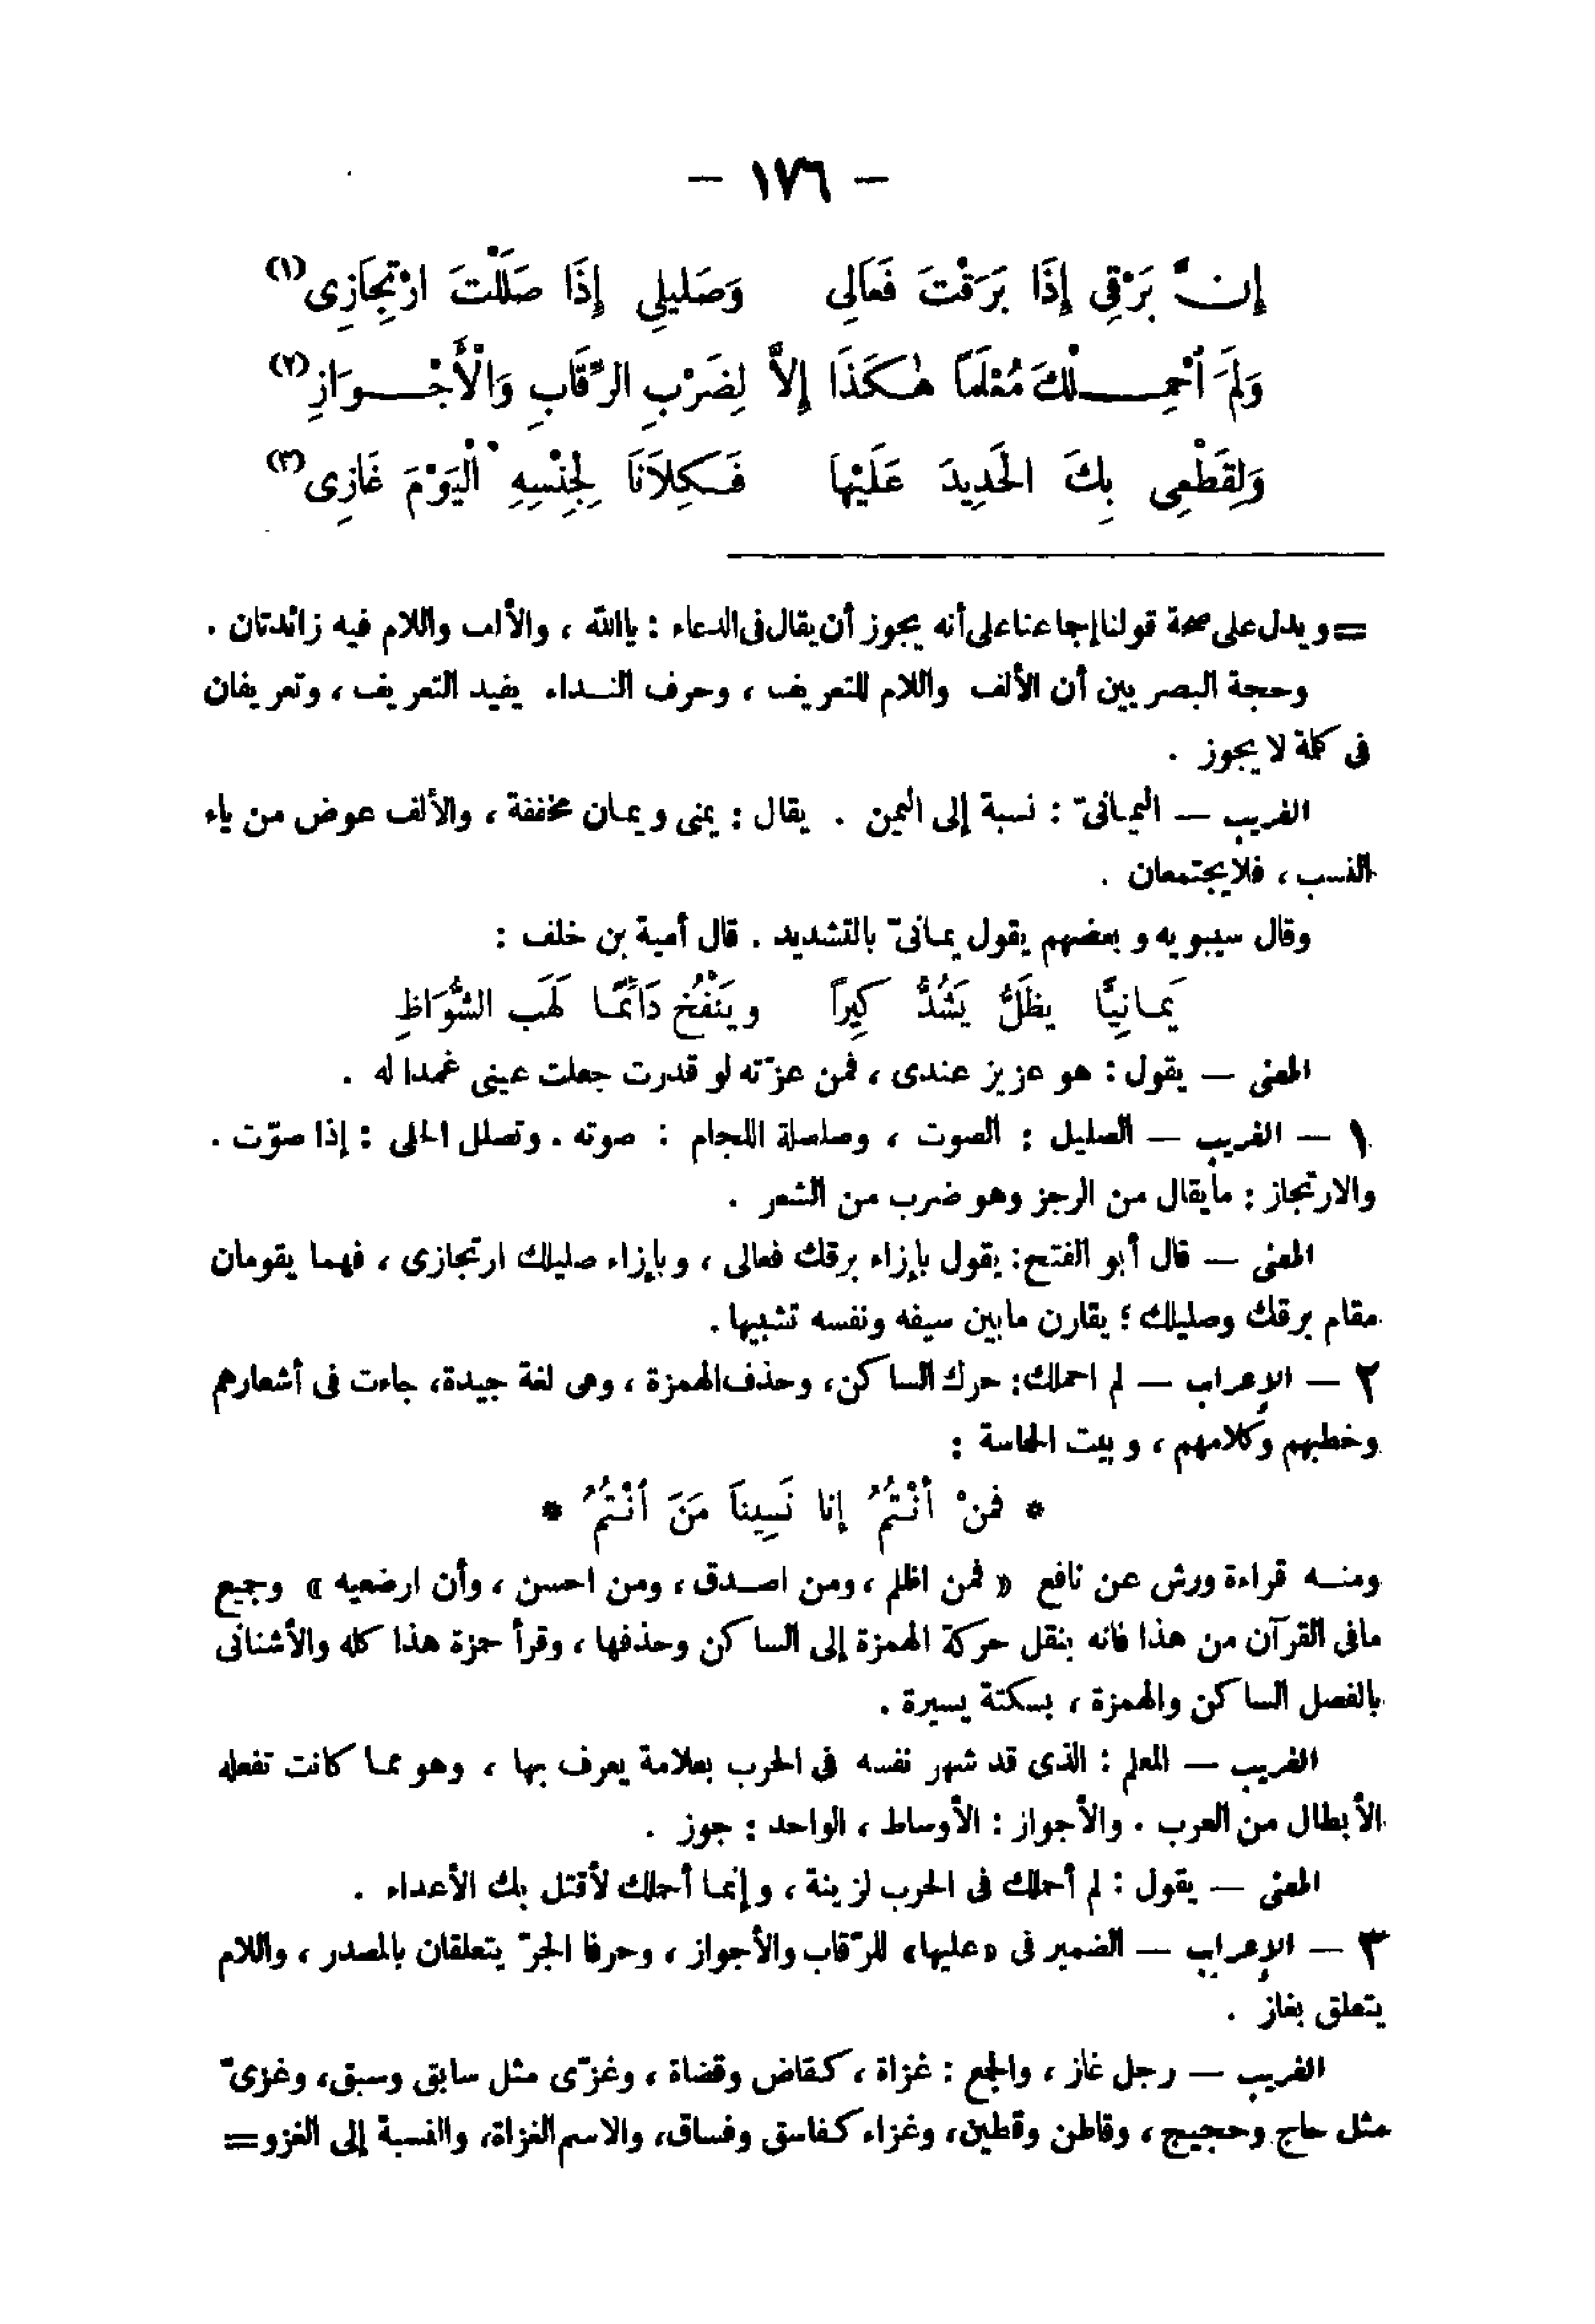 — ١٧٦ —
إِنَّ بَرْقِى إِذَا بَرَقْتَ فَعَالِى وَصَلِيلِى إِذَا صَلَلْتَ ارْتِجَازِى (١)
وَلَمَ اُحْمِلْكَ مُعْلَمًا هٰكَذَا إِلاَّ لِضَرْبِ الرِّقَابِ وَالْأَجْوَازِ (٢)
وَلِقَطْعِى بِكَ الحَدِيدَ عَلَيْهاَ فَكِلاَنَا لِجِنْسِهِ الْيَوْمَ غَازِى (٣)
= ويدل على صحة قولنا إجماعنا على أنه يجوز أن يقال فى الدعاء : يا الله ، والألف واللام فيه زائدتان .
وحجة البصريين أن الألف واللام للتعريف ، وحرف النداء يفيد التعريف ، وتعريفان
فى كلمة لا يجوز .
الغريب — اليمانىّ : نسبة إلى اليمن . يقال : يمنى ويمان مخففة ، والألف عوض من ياء
النسب ، فلا يجتمعان .
وقال سيبويه وبعضهم يقول يمانىّ بالتشديد . قال أمية بن خلف :
يَمانِيًّا يظَلُّ يَشُدُّ كِيرًا وينْفُخ دَائمًا لَهَب الشُّوَاظِ
المعنى — يقول : هو عزيز عندى ، فمن عزّته لو قدرت جعلت عينى غمدا له .
١ — الغريب — الصليل : الصوت ، وصلصلة اللجام : صوته . وتصلل الحلى : إذا صوّت .
والارتجاز : ما يقال من الرجز وهو ضرب من الشعر .
المعنى — قال أبو الفتح : يقول بإزاء برقك فعالى ، وبإزاء صليلك ارتجازى ، فهما يقومان
مقام برقك وصليلك ؛ يقارن ما بين سيفه ونفسه تشبيها .
٢ — الإعراب — لم احملك : حرك الساكن ، وحذف الهمزة ، وهى لغة جيدة ، جاءت فى أشعارهم
وخطبهم وكلامهم ، وبيت الحماسة :
* فمنْ أنْتُمُ إنا نَسِيناَ مَنَ اُنْتُمُ *
ومنه قراءة ورش عن نافع « فمن اظلم ، ومن اصدق ، ومن احسن ، وأن ارضعيه » وجميع
ما فى القرآن من هذا فانه بنقل حركة الهمزة إلى الساكن وحذفها ، وقرأ حمزة هذا كله والأشنانى
بالفصل الساكن والهمزة ، بسكتة يسيرة .
الغريب — المعلم : الذى قد شهر نفسه فى الحرب بعلامة يعرف بها ، وهو مما كانت تفعله
الأبطال من العرب . والأجواز : الأوساط ، الواحد : جوز .
المعنى — يقول : لم أحملك فى الحرب لزينة ، وإنما أحملك لأقتل بك الأعداء .
٣ — الإعراب — الضمير فى «عليها» للرّقاب والأجواز ، وحرفا الجرّ يتعلقان بالمصدر ، واللام
يتعلق بغاز .
الغريب — رجل غاز ، والجمع : غزاة ، كقاض وقضاة ، وغزّى مثل سابق وسبق ، وغزىّ
مثل حاج وحجيج ، وقاطن وقطين ، وغزاء كفاسق وفساق ، والاسم الغزاة ، والنسبة إلى الغزو =